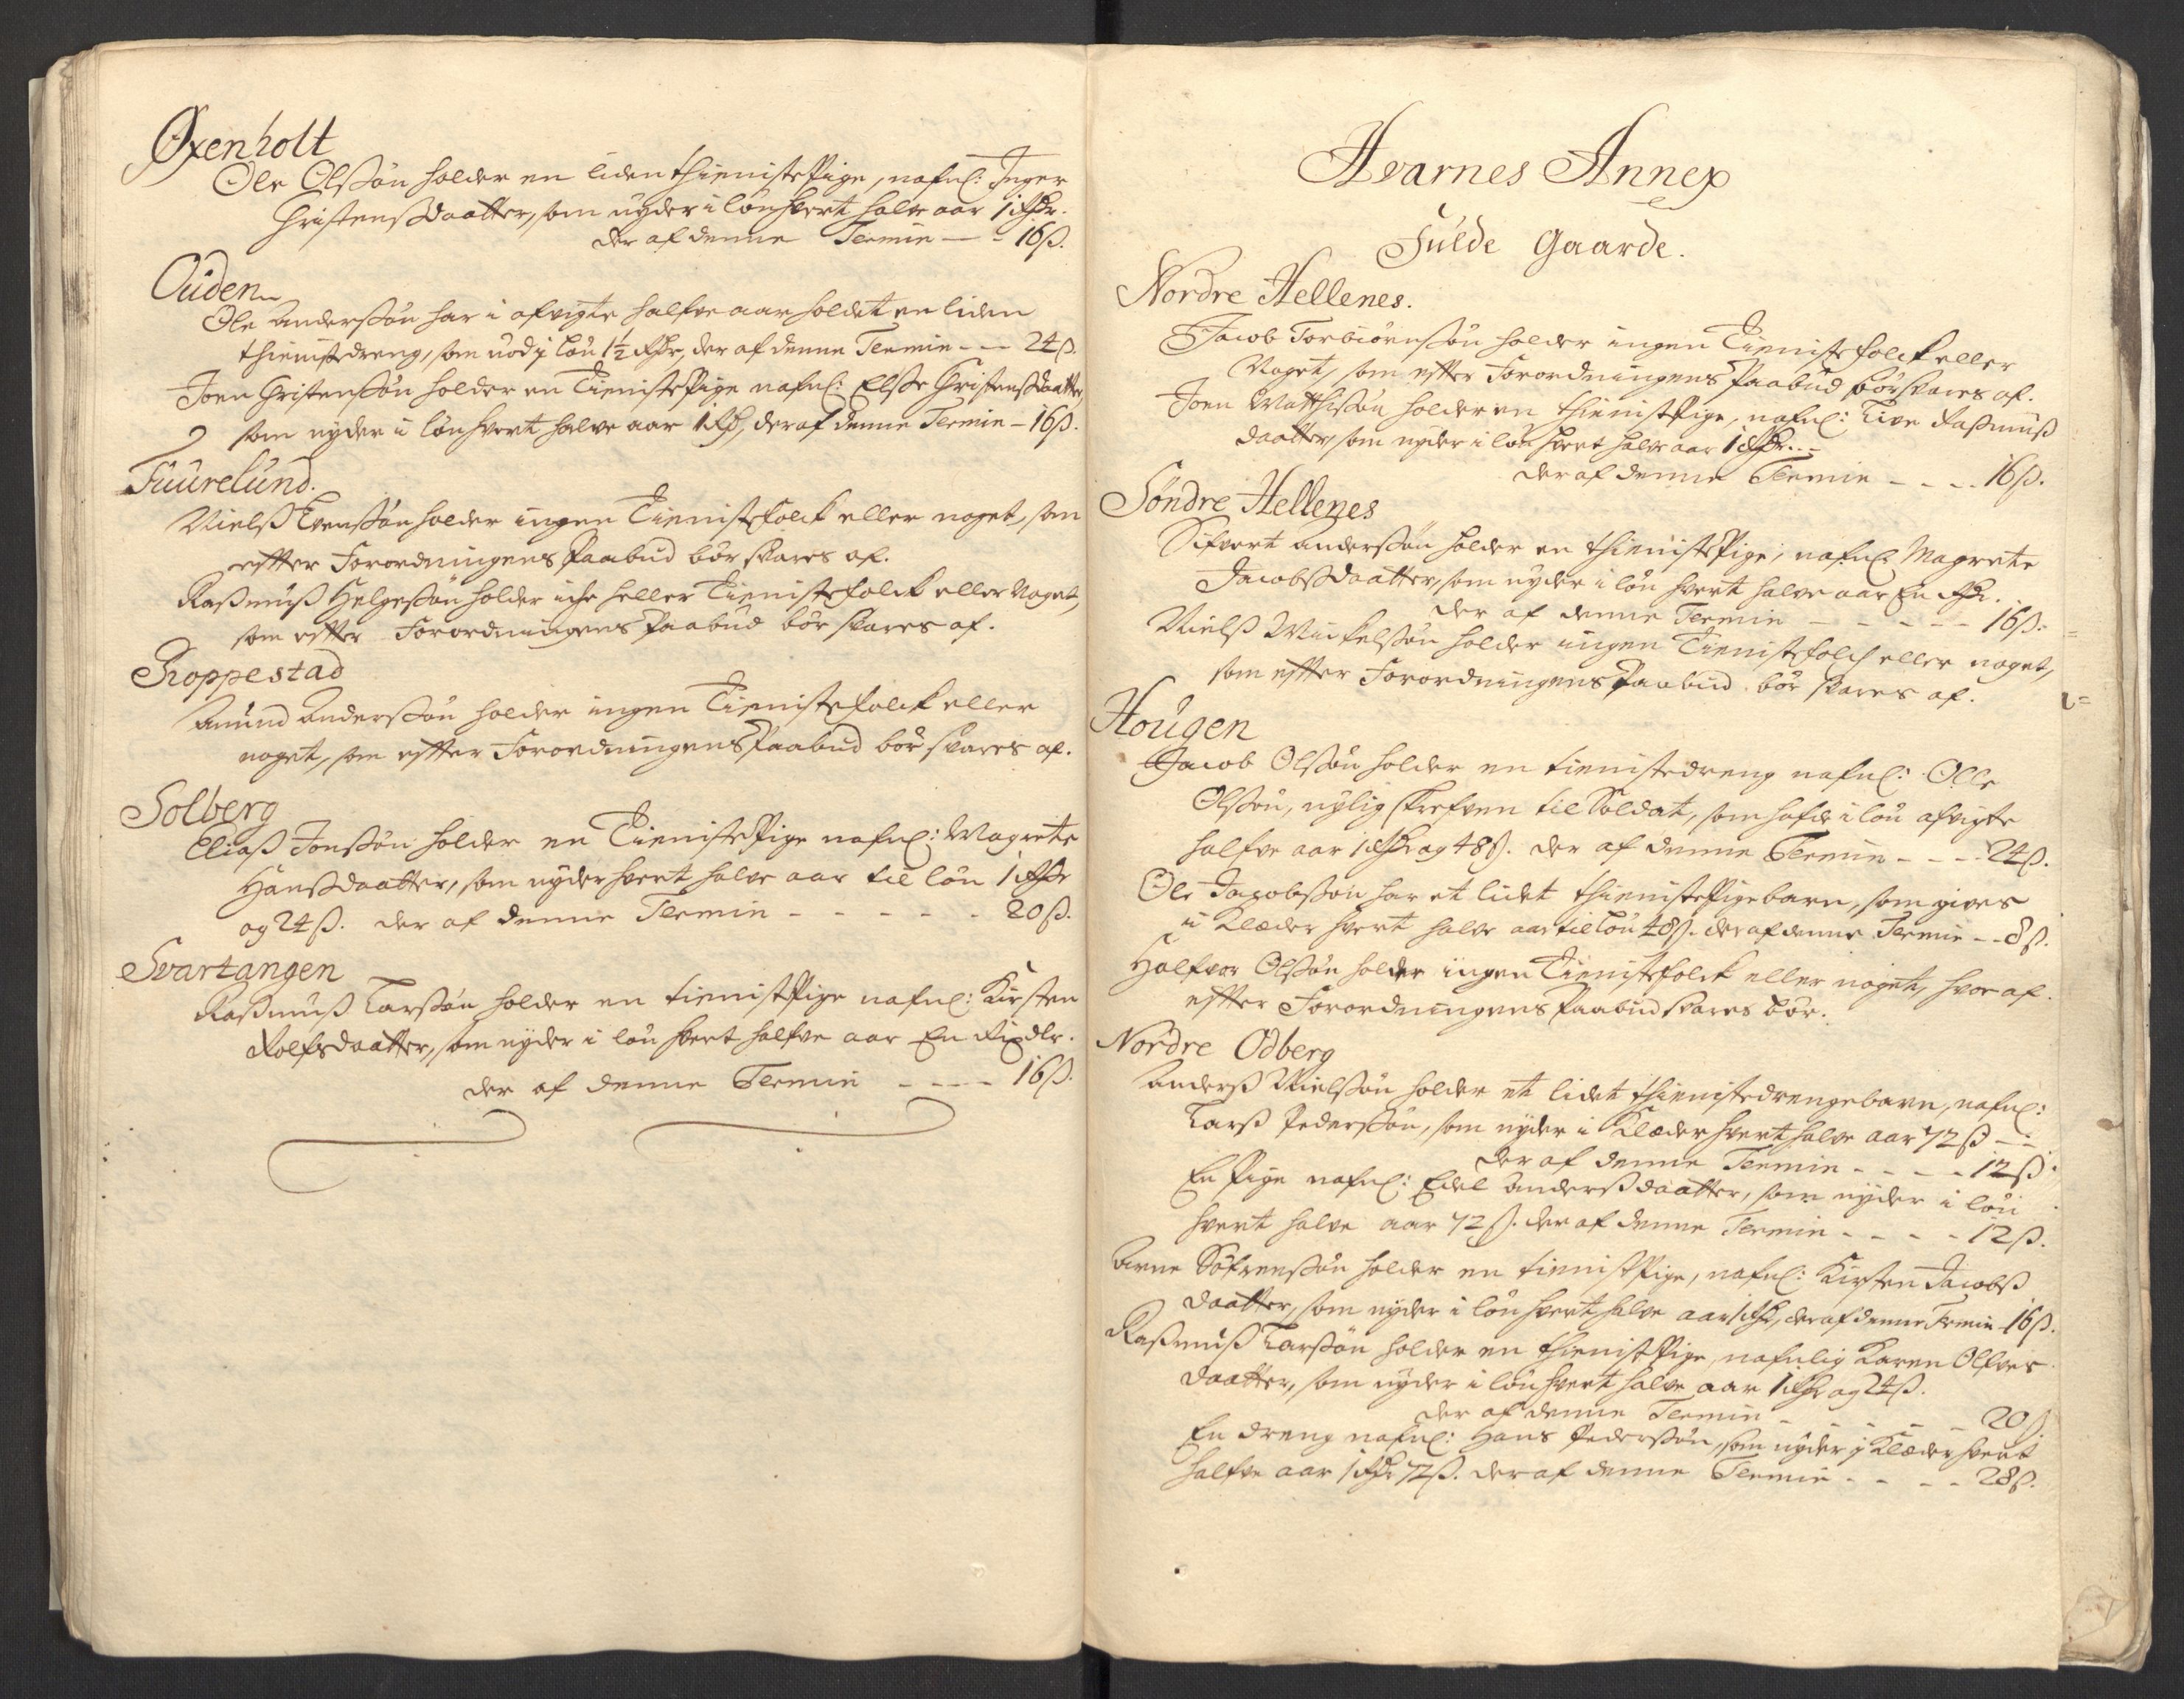 Øxenholt
Ole Olßøn holder en liden thienistePige, nafnl: Inger
Christensdaatter, som nyder i løn hvert halve aar 1 Rdr.
der af denne Termin — - 16 ß.
Ouden
Ole Anderßøn har i afvigte halfve aar holdet en liden
thienistdreng, som nød j løn 1½ Rdr, der af denne Termin - - - 24 ß.
Joen Christenßøn holder en TienistePige nafnl: Elße Christenßdaatter,
som nyder i løn hvert halve aar 1 Rd, der af denne Termin - 16 ß.
Fuurelund.
Nielß Evenßøn holder ingen Tienistefolck eller noget, som
effter Forordningens Paabud bør svares af.
Raßmuß Helgeßøn holder iche heller Tienistefolck eller Noget,
som effter Forordningens Paabud bør svares af.
Roppestad
Amund Anderßøn holder ingen Tienistefolck eller
noget, som effter Forordningens Paabud bør svares af.
Solberg
Eliaß Jonßøn holder en TienistePige nafnl: Magrete
Hanßdaatter, som nyder hvert halve aar til løn 1 Rdr
og 24 ß. der af denne Termin - - - - - 20 ß.
Svartangen
Raßmuß Larßøn holder en tienistPige nafnl: Kirsten
Rolfsdaatter, som nyder i løn hvert halfve aar En Rixdlr.
der af denne Termin - - - - 16 ß.
Hvarnes Annex
Fulde Gaarde.
Nordre Hellenes.
Jacob Torbiørnßøn holder ingen Tienistefolck eller
Noget, som effter Forordningens Paabud bør svares af.
Joen Matthißøn holder en thienistPige, nafnl: Live Raßmuß
daatter, som nyder i løn hvert halve aar 1 Rdr. - -
der af denne Termin - - - - 16 ß.
Søndre Hellenes
Sifvert Anderßøn holder en thienistPige, nafnl Magrete
Jacobßdaatter, som nyder i løn hvert halve aar En Rdr.
der af denne Termin - - - - - 16 ß.
Nielß Mickelßøn holder ingen Tienistefolch eller noget,
som effter Forordningens Paabud bør svares af.
Hougen
Jacob Olßøn holder en tienistedreng nafnl: Olle
Olßøn, nylig skrefven til Soldat, som hafde i løn afvigte
halfve aar 1 Rdr og 48 ß. der af denne Termin - - - 24 ß.
Ole Jacobßøn har et lidet thienistePigebarn, som gives
i Klæder hvert halve aar til løn 48 ß. der af denne Termin - - 8 ß.
Halfvor Olßøn holder ingen Tienistefolck eller noget, hvor af
effter Forordningens Paabud svares bør.
Nordre Odberg
Anderß Nielßøn holder et lidet thienistedrengebarn, nafnl:
Larß Pederßøn, som nyder i Klæder hvert halve aar 72 ß - -
der af denne Termin - - - - 12 ß.
En Pige nafnl: Edel Anderßdaatter, som nyder i løn
hvert halve aar 72 ß. der af denne Termin - - - - 12 ß.
Arne Søfrenßøn holder en tienistPige, nafnl: Kirsten Jacobß
daatter, som nyder i løn hvert halve aar 1 Rdr, der af denne Termin 16 ß.
Raßmuß Larßøn holder en thienistPige, nafnlig Karen Olfves
daatter, som nyder i løn hvert halve aar 1 Rdr og 24 ß.
der af denne Termin - - - - - 20 ß.
En dreng nafnl: Hans Pederßøn, som nyder j Klæder hvert
halfve aar 1 Rdr 72 ß. der af denne Termin - - - - 28 ß.